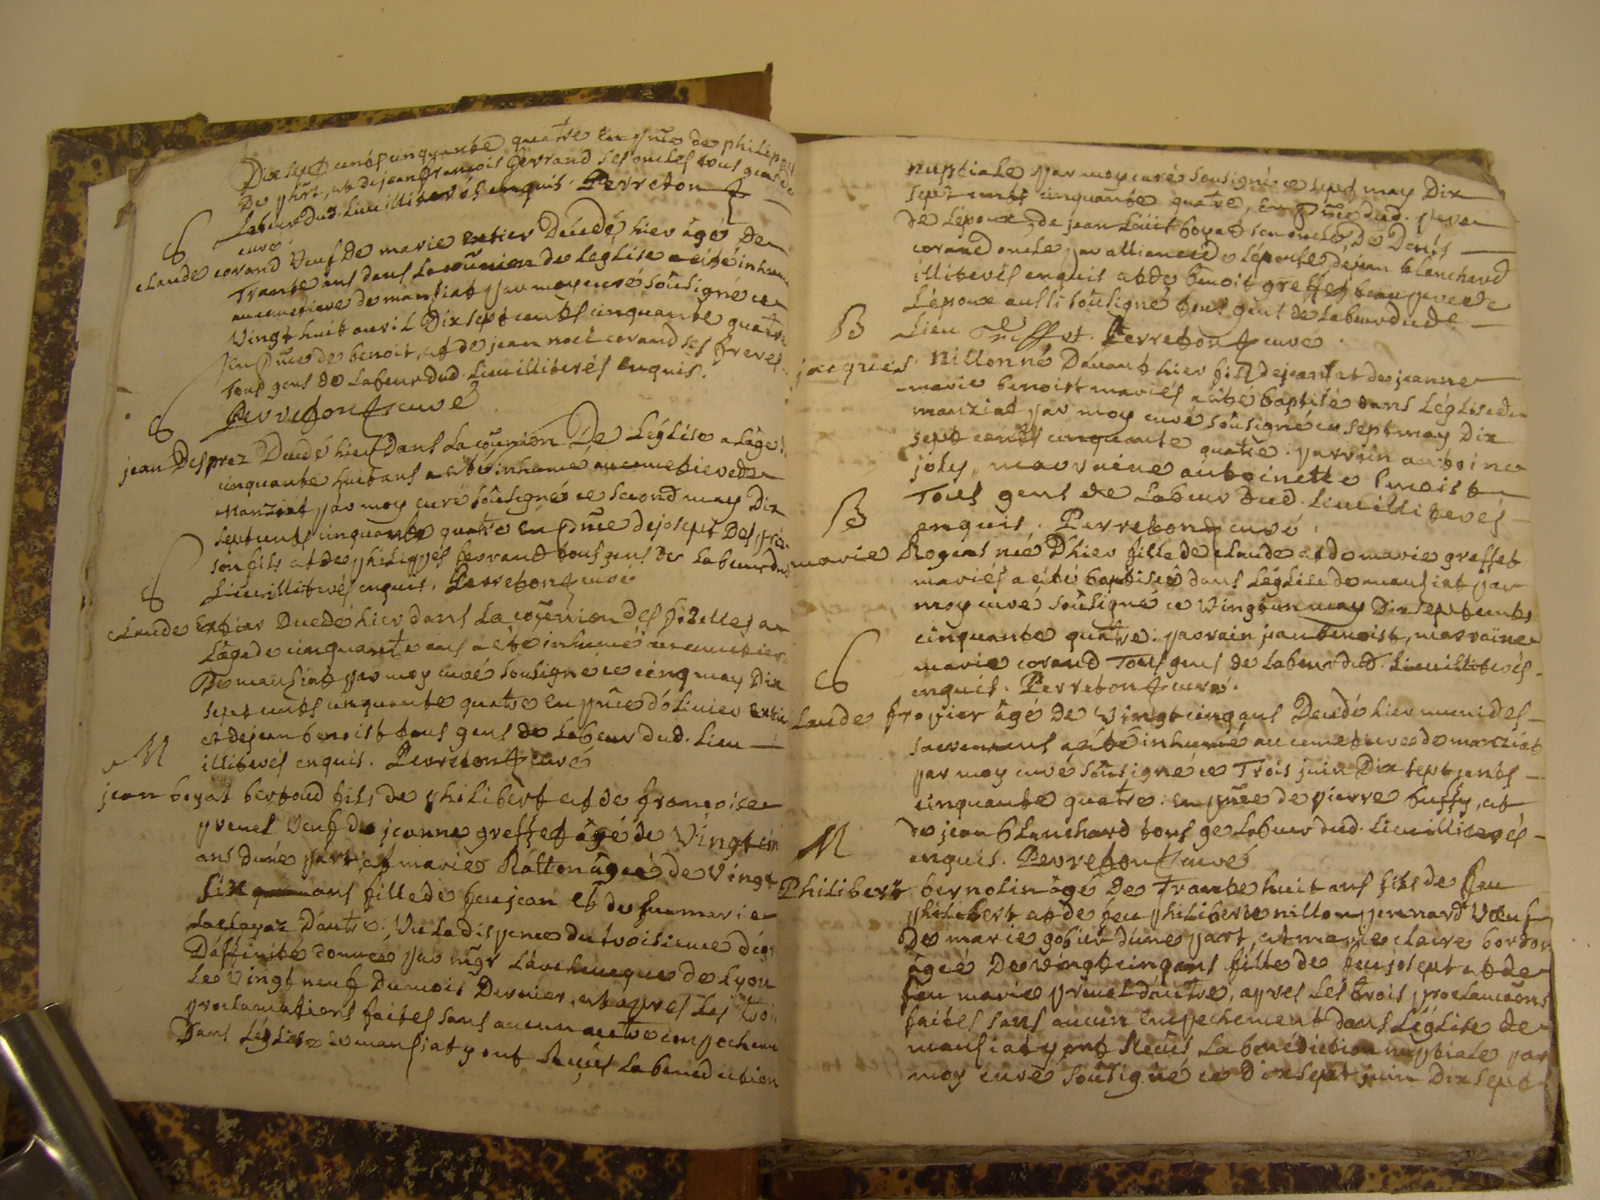 Dix sept cents cinquante quatre en pñce de philippe
de phlt, et de jean françois ferrand ses oncles tous gens de
Labeur dud. Lieu illiterés enquis. Perreton
curé
S
claude corand Veuf de marie extier Decedé hier âgé De
Trante ans dans La coũnion de L'eglise a eté inhumé
au cimetiere de mansiat par moy curé soũsigné ce
Vingt huit avril Dix sept cents cinquante quatre
En pñce de benoit, et de jean noel corand ses freres
Tous gens de Labeur dud. Lieu illiterés enquis.
Perreton curé
S
jean Desprez Decedé hier Dans La coũnion De L'église a L'âge
cinquante huit ans a eté inhumé au cimetiere de
Manziat par moy curé soũsigné ce second may Dix
sept cents cinquante quatre En pñce de joseph Desprez
son fils et de philippes ferrand tous gens de Labeur dud
Lieu illiterés enquis. Perreton curé
S
claude Extier Decedé hier dans La coũnion des fidelles a
L'age de cinquante ans a eté inhumé au cimetiere
De mansiat par moy curé soũsigné ce cinq may Dix
sept cents cinquante quatre en pñce d'olivier Extier
et de jean benoist tous gens de Labeur dud. Lieu
illiterés enquis. Perreton curé
M
jean boyat bertoud fils de philibert et de françoise
prenel Veuf de jeanne greffet âgé de Vingt cinq
ans d'une part, et marie Ratton âgée de Vingt
six ans fille de feu jean et de feu marie
D'autre: Vu La dispence du troisieme dégr
D'affinité donnée par mgr L'archeveque de Lyon
Le Vingt neuf Du mois Dernier, et apres Les trois
proclamations faites sans aucun autre empechem
Dans L'église de mansiat y ont Reçus La benediction
nuptiale par moy curé soũsigné ce sept may Dix
sept cents cinquante quatre, En pñce dud. pere
de L'époux, de jean Loüis boyat son oncle, de Denis
corand oncle par alliance de L'épouse, de jean blanchard
illiterés enquis et de benoit greffet beau pere de
L'époux aussi soũsigné tous gens de Labeur dud.
Lieu Greffet. Perreton curé
B
jacques Nillon né Davant hier fils de jean et de jeanne
marie benoist mariés a eté baptisé dans L'église de
manziat par moy curé soũsigné ce sept may Dix
sept cents cinquante quatre: parrain antoine
joly, marraine antoinette benoist
Tous gens de Labeur dud. Lieu illiterés
enquis. Perreton curé
B
marie Rogens née D'hier fille de claude et de marie greffet
mariés a eté baptisée dans L'église de mansiat par
moy curé soũsigné ce Vingt un may Dix sept cents
cinquante quatre: parrain jean benoist, marraine
marie corand Tous gens de Labeur dud. Lieu illiterés
enquis. Perreton curé.
S
Claude fropier âgé De Vingt cinq ans Decedé hier muni des
sacremens a eté inhumé au cimetiere de manziat
par moy curé soũsigné ce Trois juin Dix sept cents
cinquante quatre: en pñce de pierre buffy, et
de jean blanchard tous ge Labeur dud. Lieu illiterés
enquis. Perreton curé
M
Philibert bernolin âgé De Trante huit ans fils de feu
philibert et de feu philiberte nillon pennard Veuf
De marie gobier d'une part, et marie claire bordon
âgée De vingt cinq ans fille de feu joseph et de
feu marie prenel d'autre, apres Les trois proclamaõns
faites sans aucun Empechement dans L'église de
mansiat y ont Reçus La benediction nuptiale par
moy curé soũsigné ce Dix sept juin Dix sept